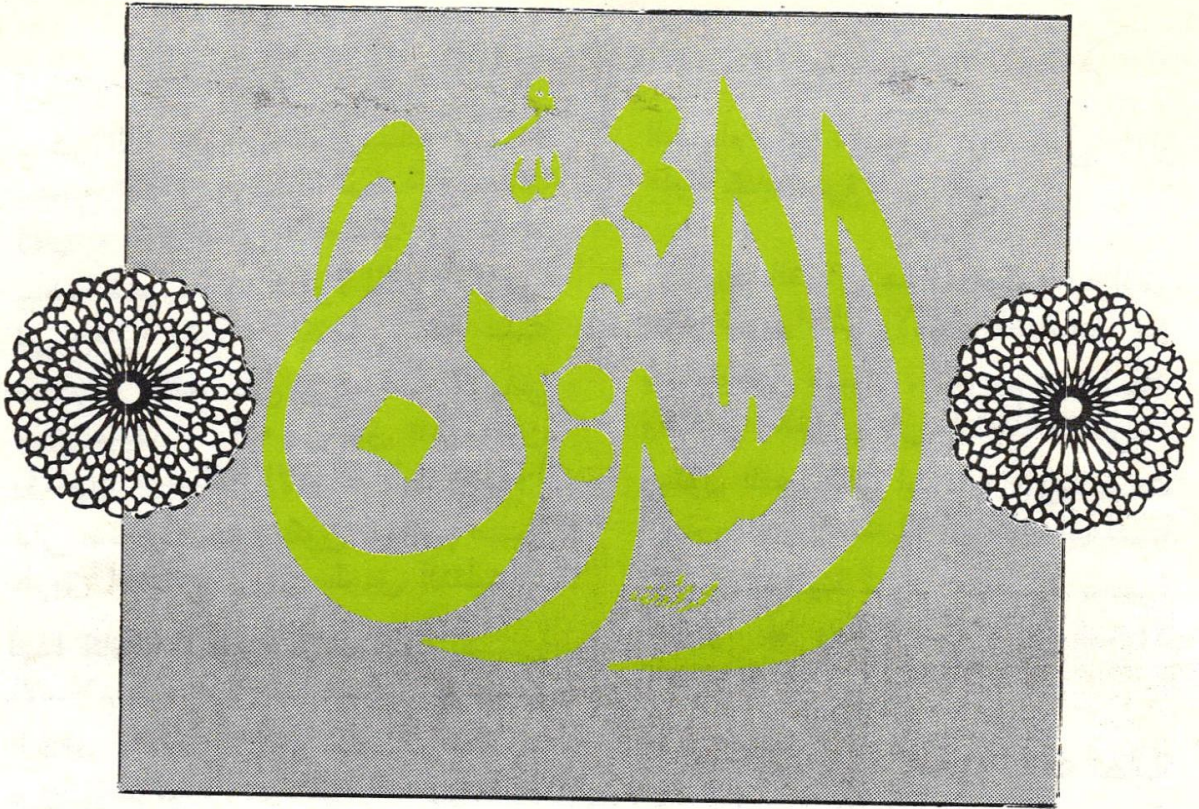 التزيُّن